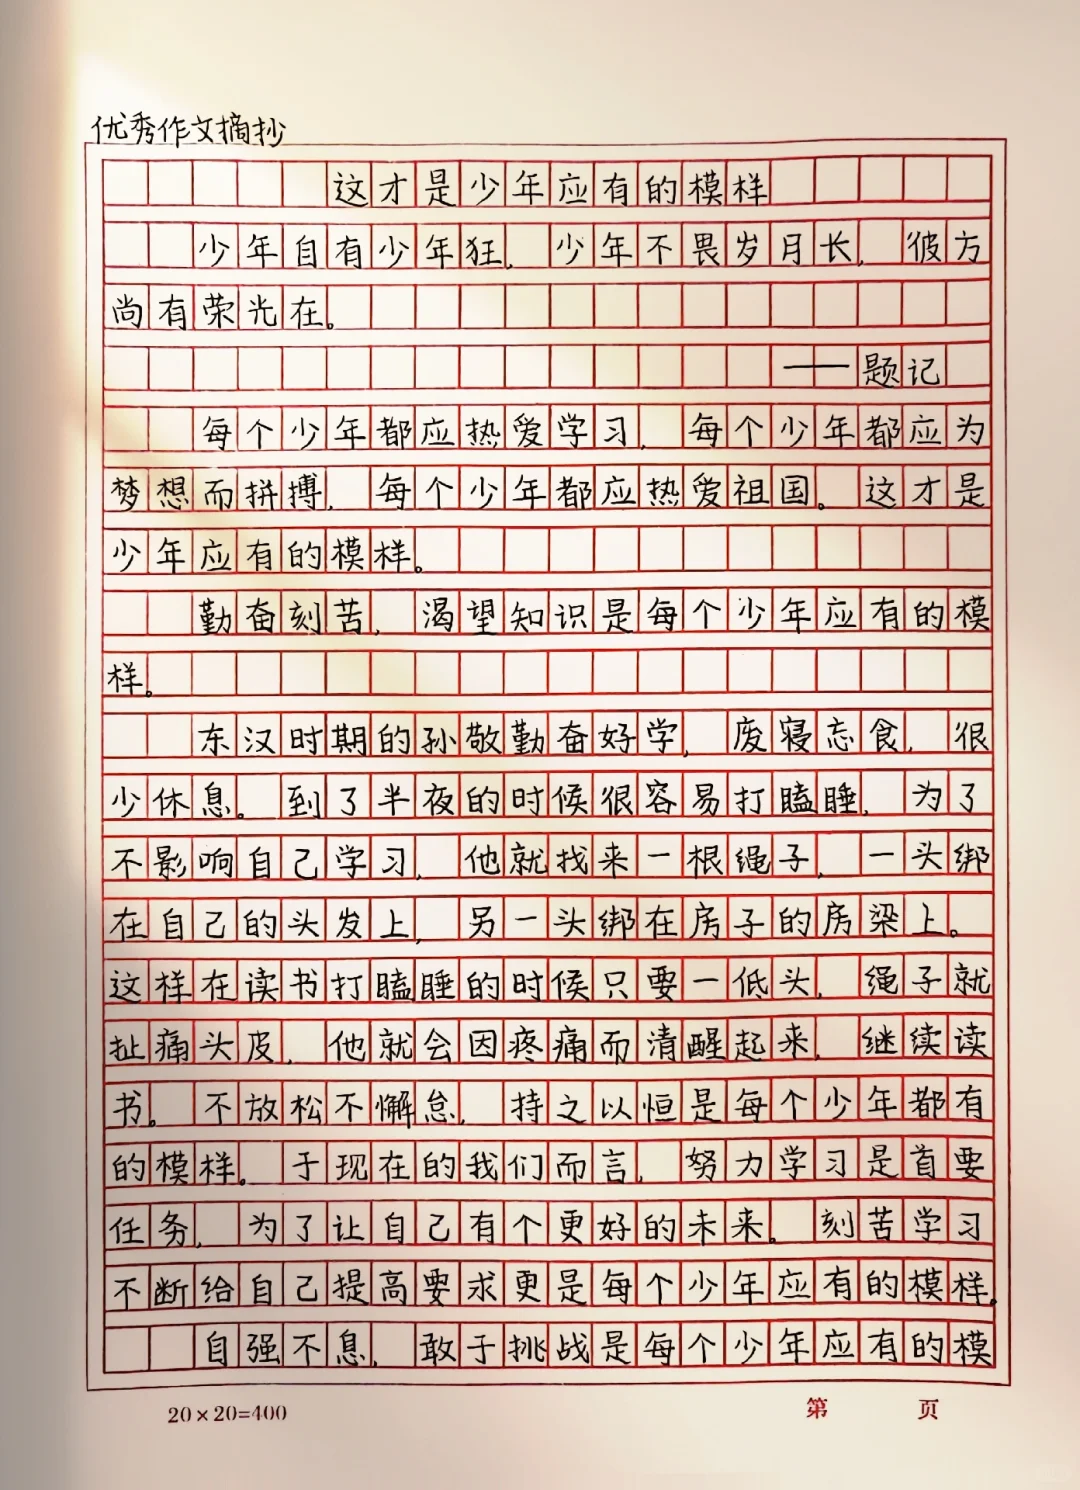 优秀作文摘抄
这才是少年应有的模样
少年自有少年狂，少年不畏岁月长，彼方
尚有荣光在。
——题记
每个少年都应热爱学习，每个少年都应为
梦想而拼搏，每个少年都应热爱祖国。这才是
少年应有的模样。
勤奋刻苦，渴望知识是每个少年应有的模
样。
东汉时期的孙敬勤奋好学，废寝忘食，很
少休息。到了半夜的时候很容易打瞌睡，为了
不影响自己学习，他就找来一根绳子，一头绑
在自己的头发上，另一头绑在房子的房梁上。
这样在读书打瞌睡的时候只要一低头，绳子就
扯痛头皮，他就会因疼痛而清醒起来，继续读
书。不放松不懈怠，持之以恒是每个少年都有
的模样。于现在的我们而言，努力学习是首要
任务，为了让自己有个更好的未来。刻苦学习
不断给自己提高要求更是每个少年应有的模样。
自强不息，敢于挑战是每个少年应有的模
20×20=400
第 页